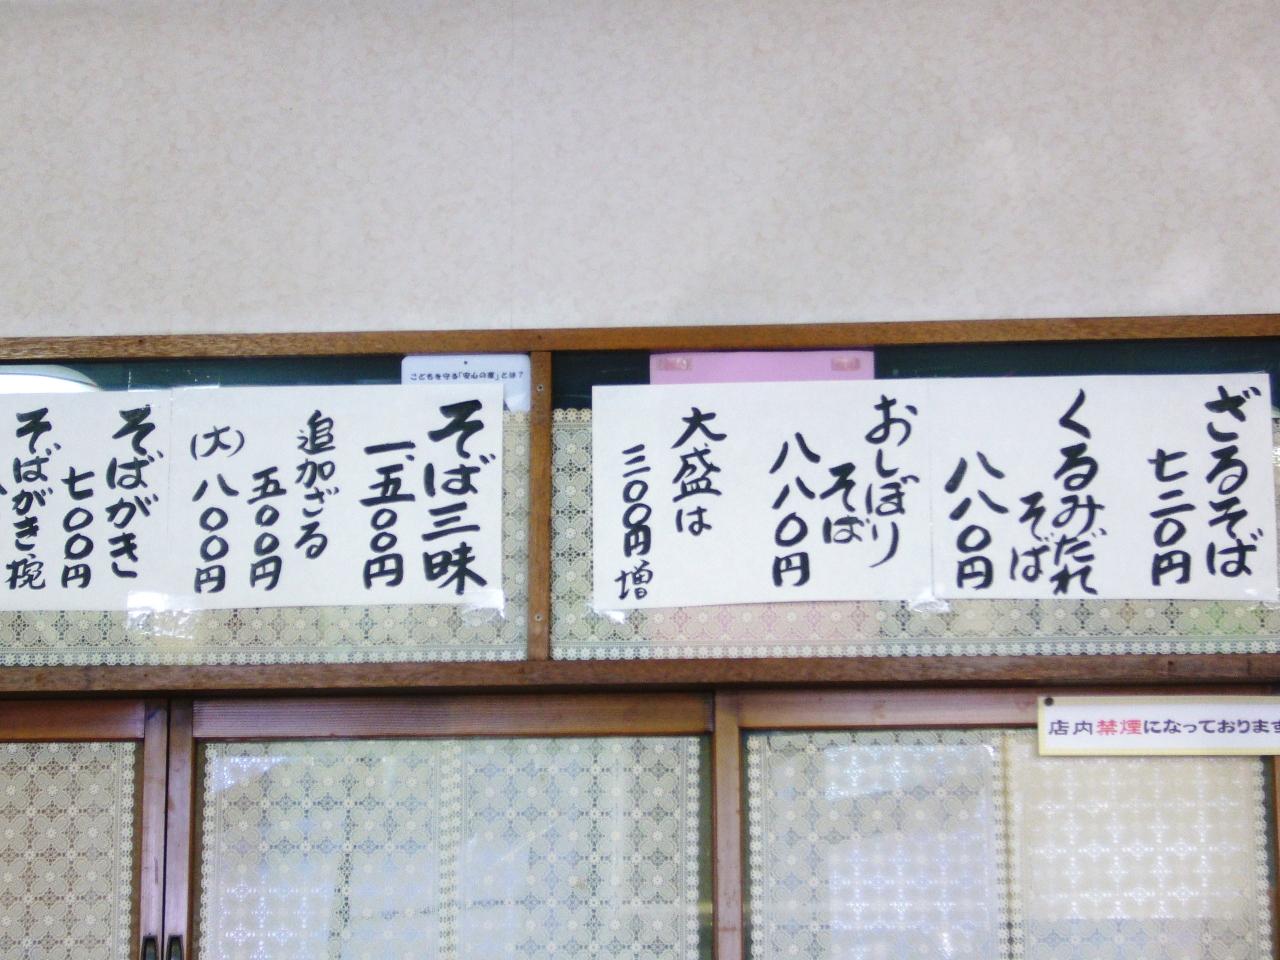 ざるそば
七二〇円
くるみだれ
そば
八八〇円
おしぼり
そば
八八〇円
大盛は
三〇〇円増
そば三昧
一、五〇〇円
追加ざる
五〇〇円
(大)
八〇〇円
そばがき
七〇〇円
そばがき、椀
こどもを守る「安心の家」とは？
店内禁煙になっております